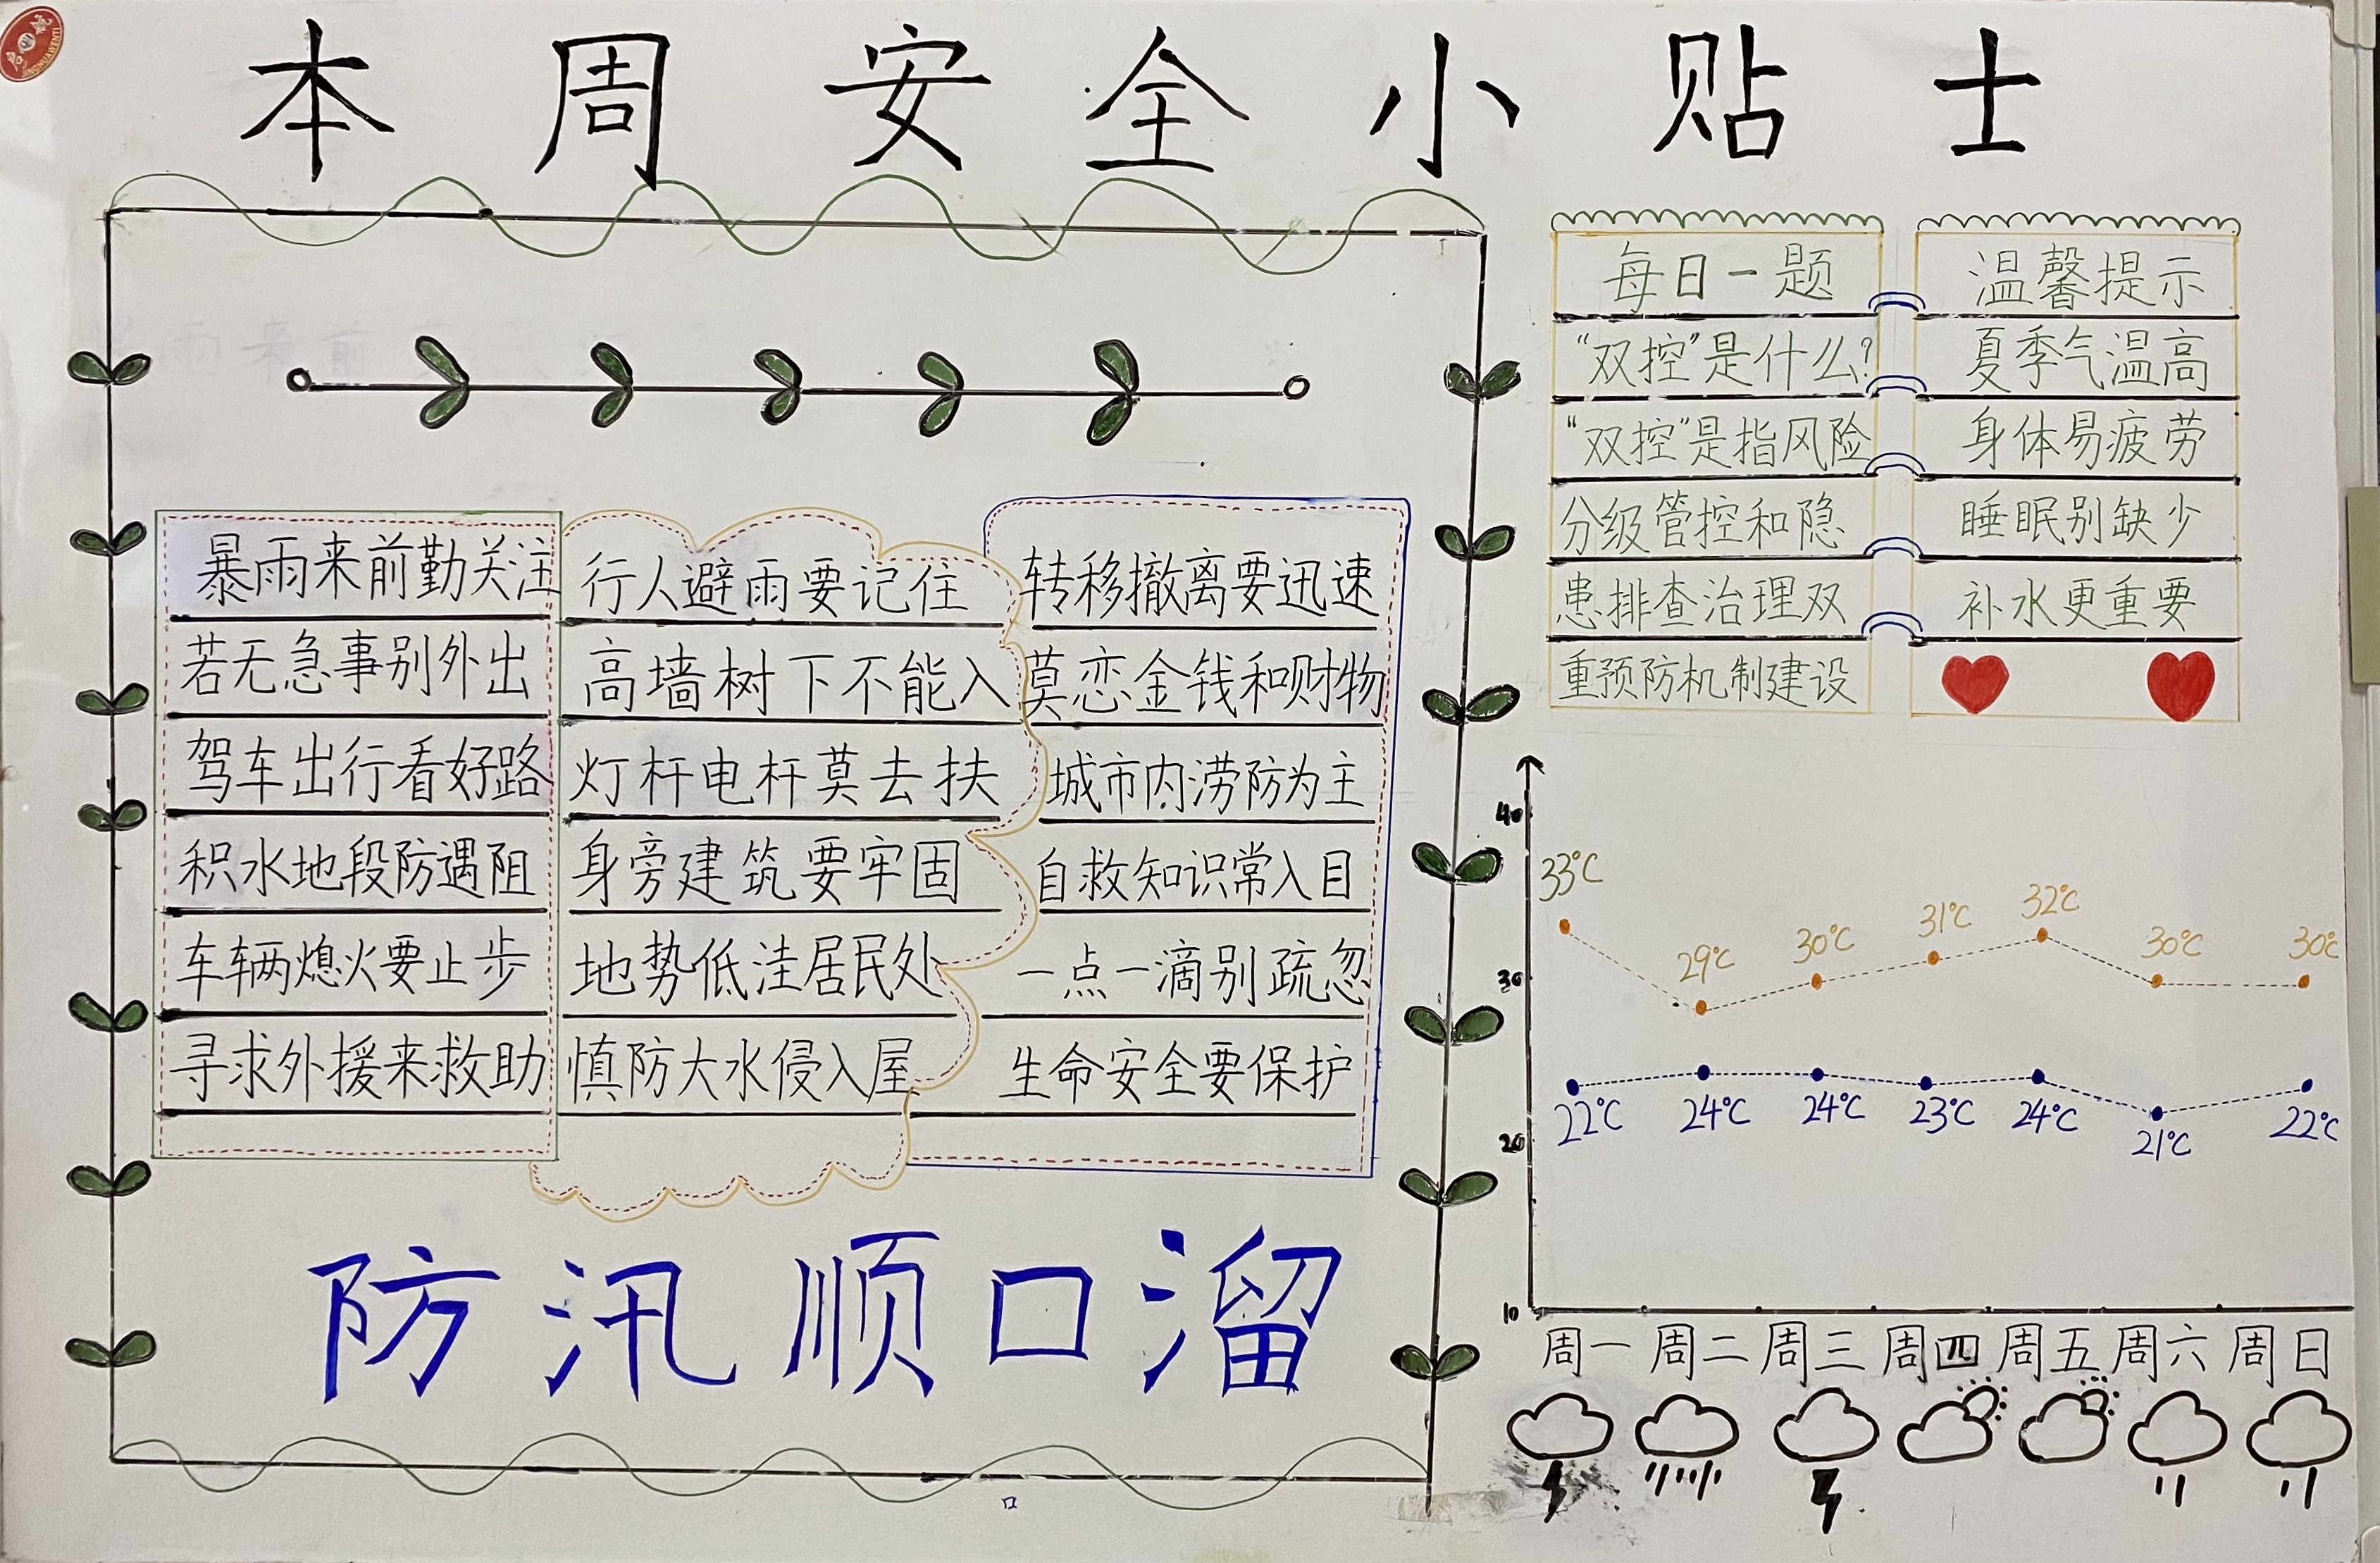 本周安全小贴士
暴雨来前勤关注
若无急事别外出
驾车出行看好路
积水地段防遇阻
车辆熄火要止步
寻求外援来救助
行人避雨要记住
高墙树下不能入
灯杆电杆莫去扶
身旁建筑要牢固
地势低洼居民处
慎防大水侵入屋
转移撤离要迅速
莫恋金钱和财物
城市内涝防为主
自救知识常入目
一点一滴别疏忽
生命安全要保护
防汛顺口溜
每日一题
“双控”是什么?
“双控”是指风险
分级管控和隐
患排查治理双
重预防机制建设
温馨提示
夏季气温高
身体易疲劳
睡眠别缺少
补水更重要
40
30
20
10
33℃ 29℃ 30℃ 31℃ 32℃ 30℃ 30℃
22℃ 24℃ 24℃ 23℃ 24℃ 21℃ 22℃
周一 周二 周三 周四 周五 周六 周日